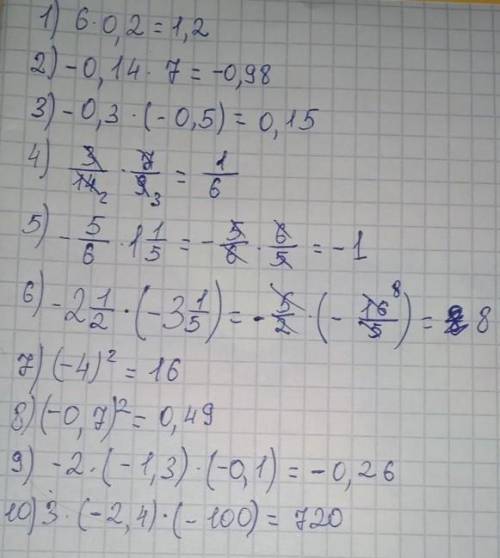 1) 6 · 0,2 = 1,2
2) -0,14 · 7 = -0,98
3) -0,3 · (-0,5) = 0,15
4) 3/14 2 · 7/9 3 = 1/6
5) -5/6 · 1 1/5 = -5/6 · 6/5 = -1
6) -2 1/2 · (-3 1/5) = -5/2 · (-16 8/5) = 8
7) (-4)² = 16
8) (-0,7)² = 0,49
9) -2 · (-1,3) · (-0,1) = -0,26
10) 3 · (-2,4) · (-100) = 720